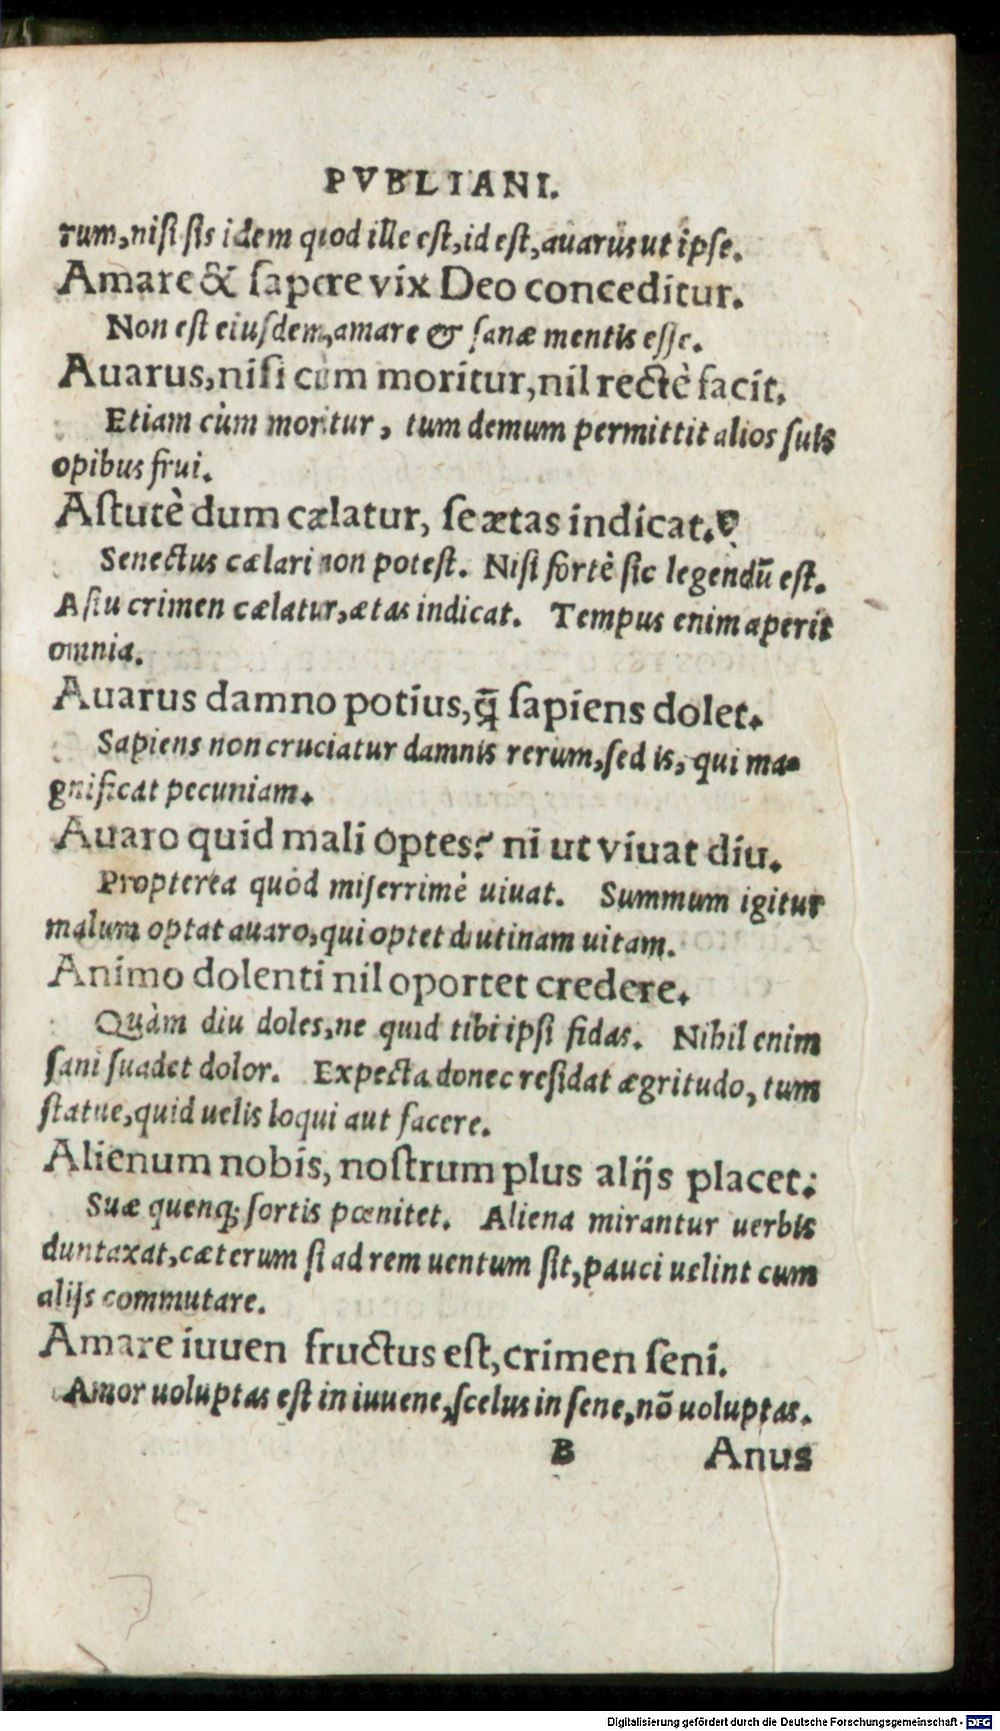 PVBLIANI.
rum, nisi sis idem quod ille est, id est, auarus ut ipse.
Amare & sapere vix Deo conceditur.
Non est eiusdem, amare & sanæ mentis esse.
Auarus, nisi cùm moritur, nil rectè facit.
Etiam cùm moritur, tum demum permittit alios suis
opibus frui.
Astutè dum cælatur, se ætas indicat.
Senectus cælari non potest. Nisi fortè sic legendū est.
Astu crimen cælatur, ætas indicat. Tempus enim aperit
omnia.
Auarus damno potius, q̄ sapiens dolet.
Sapiens non cruciatur damnis rerum, sed is, qui ma-
gnificat pecuniam.
Auaro quid mali optes? ni ut viuat diu.
Propterea quòd miserrimè uiuat. Summum igitur
malum optat auaro, qui optet diutinam uitam.
Animo dolenti nil oportet credere.
Quàm diu doles, ne quid tibi ipsi fidas. Nihil enim
sani suadet dolor. Expecta donec residat ægritudo, tum
statue, quid uelis loqui aut facere.
Alienum nobis, nostrum plus alijs placet:
Suæ quenq; sortis pœnitet. Aliena mirantur uerbis
duntaxat, cæterum si ad rem uentum sit, pauci uelint cum
alijs commutare.
Amare iuuen fructus est, crimen seni.
Amor uoluptas est in iuuene, scelus in sene, nō uoluptas.
B Anus
Digitalisierung gefördert durch die Deutsche Forschungsgemeinschaft - DFG